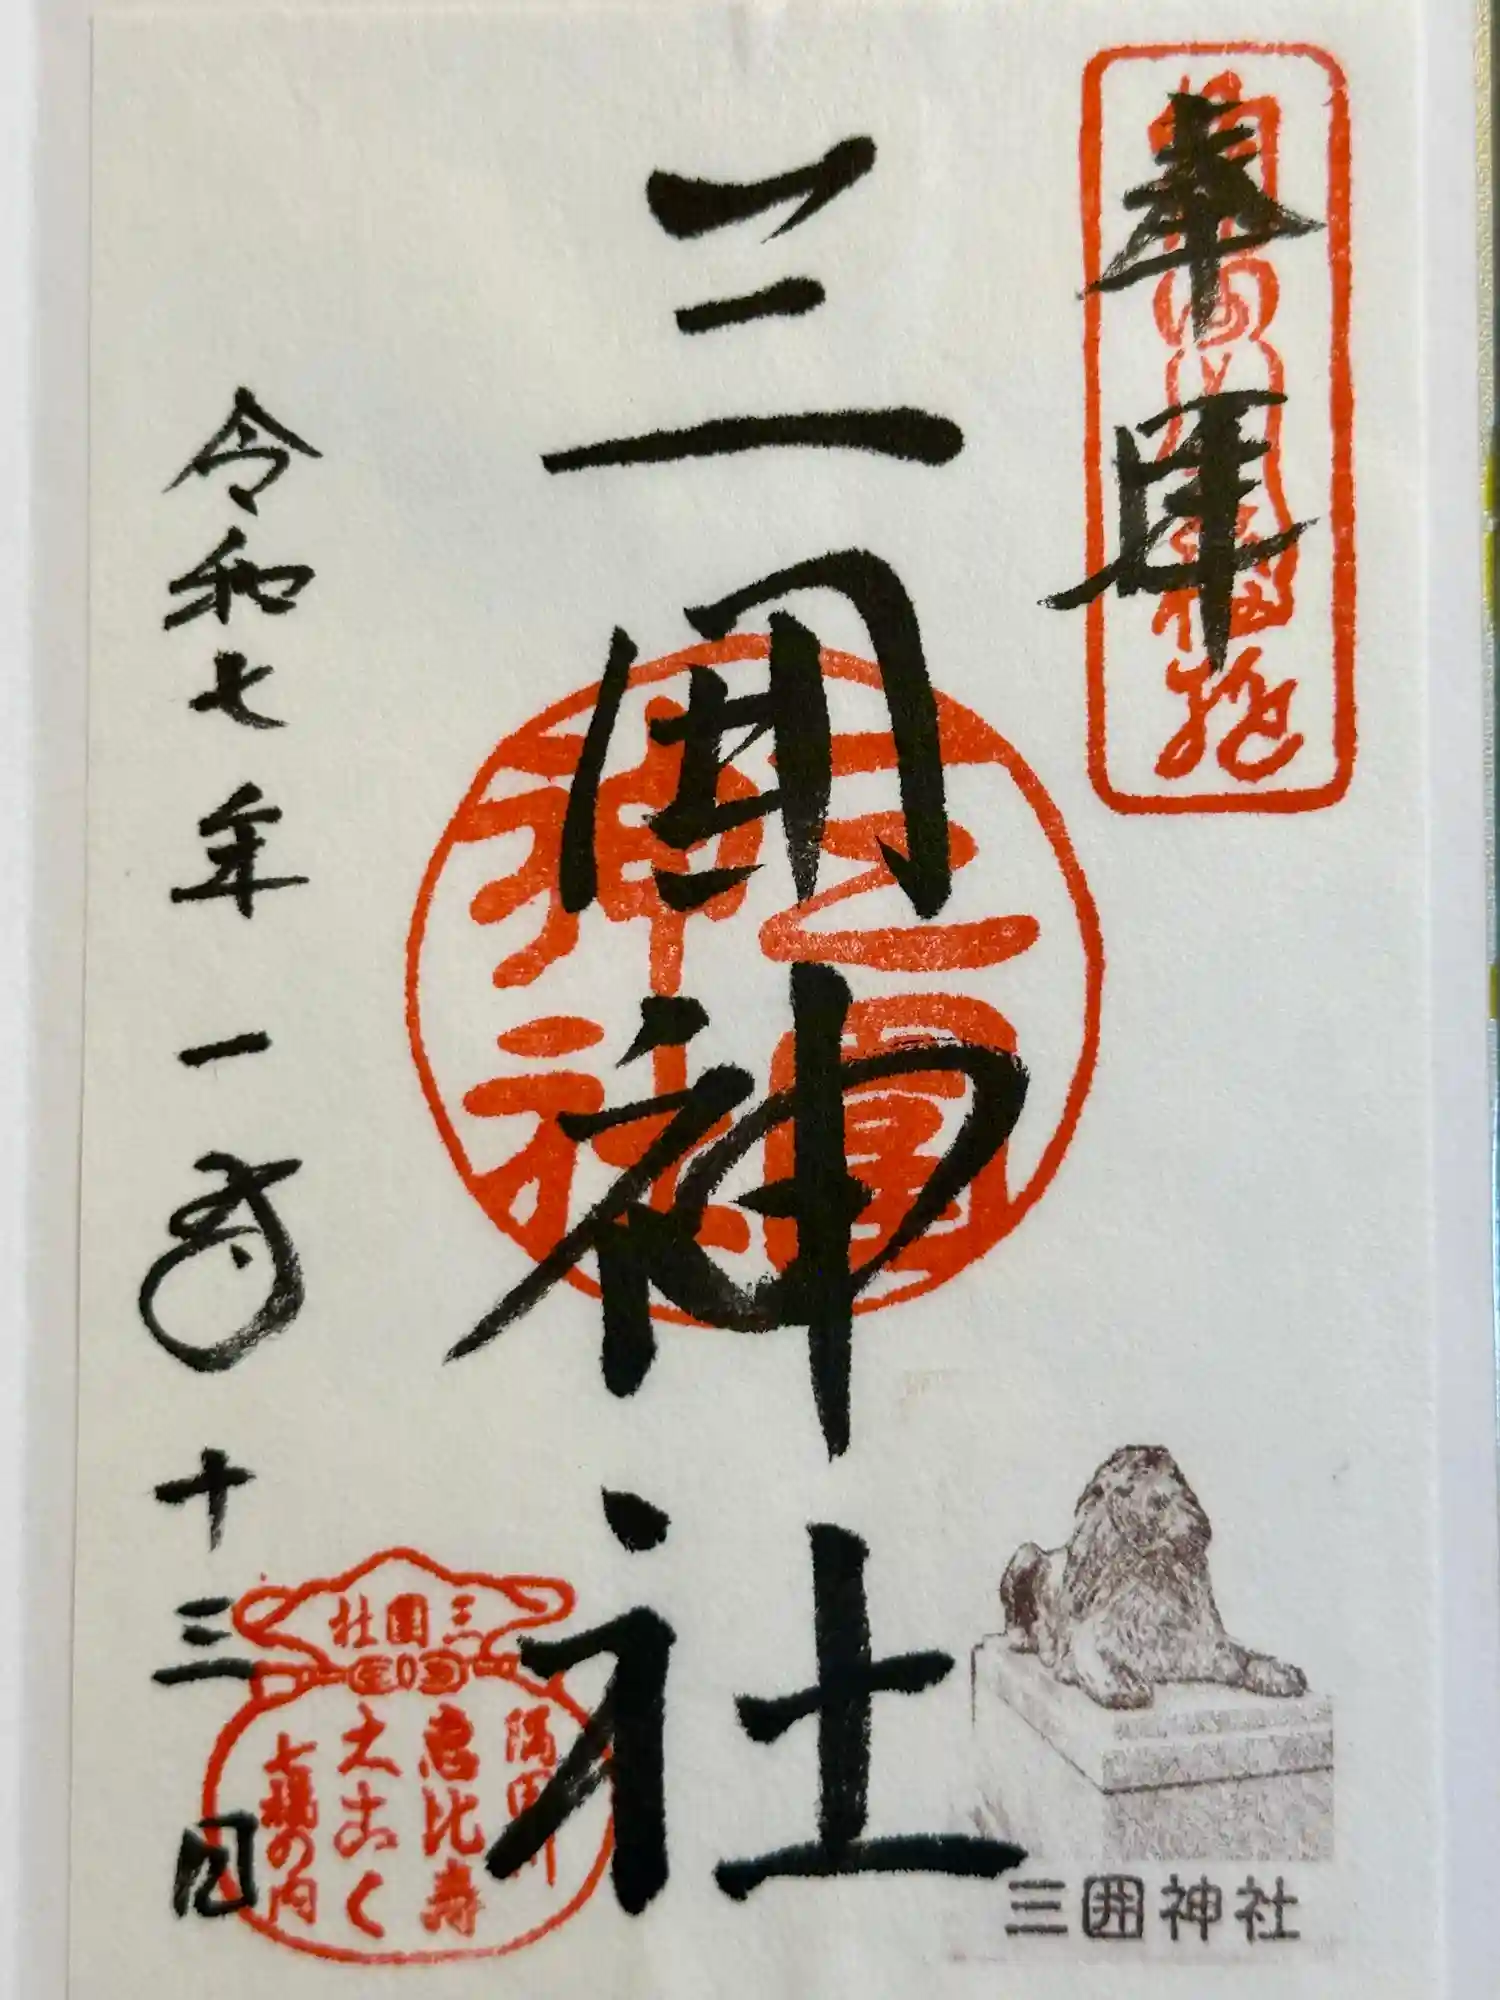 奉拝
三囲神社
三囲神社
三囲社
隅田川
恵比寿
大こく
七福の内
三囲神社
令和七年一月十三日